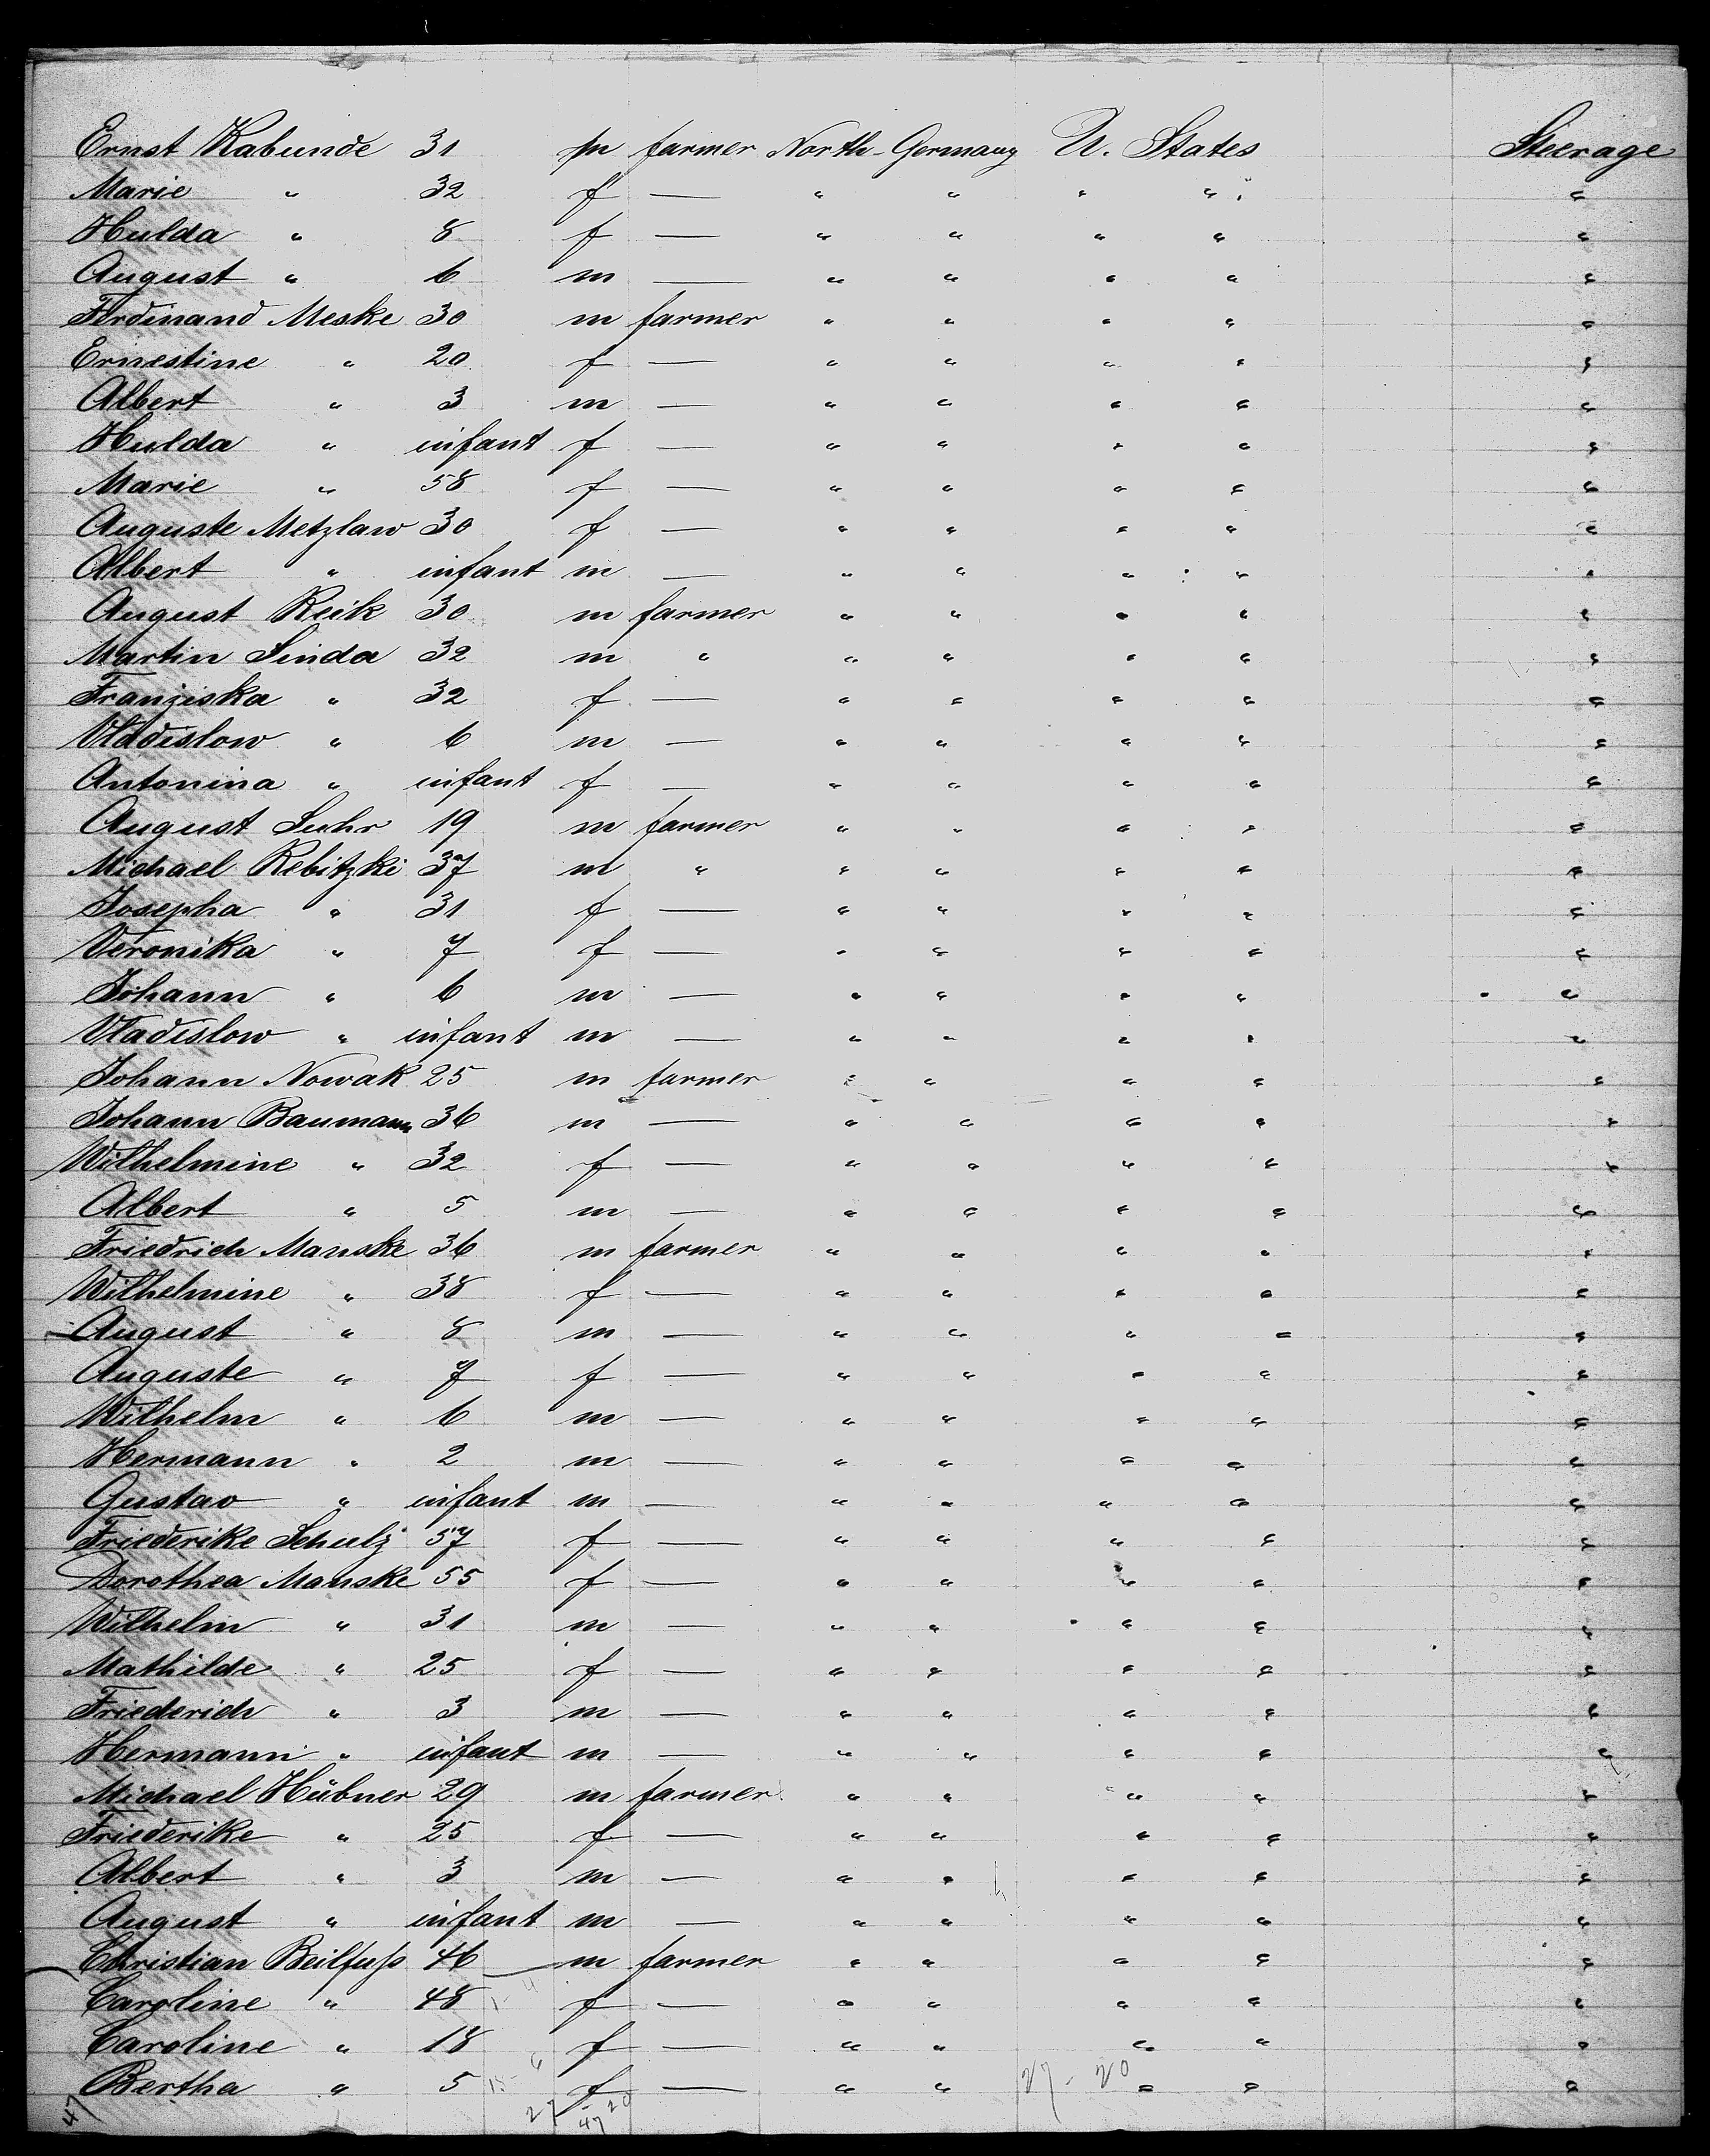 Ernst Kabunde 31 m farmer North-Germany U. States Steerage
Marie " 32 f — " " " " "
Hulda " 8 f — " " " " "
August " 6 m — " " " " "
Ferdinand Meske 30 m farmer " " " " "
Ernestine " 20 f — " " " " "
Albert " 3 m — " " " " "
Hulda " infant f — " " " " "
Marie " 58 f — " " " " "
Auguste Metzlaw 30 f — " " " " "
Albert " infant m — " " " " "
August Reik 30 m farmer " " " " "
Martin Sinda 32 m " " " " " "
Franziska " 32 f — " " " " "
Vladislow " 6 m — " " " " "
Antonina " infant f — " " " " "
August Suhr 19 m farmer " " " " "
Michael Rebitzki 37 m " " " " " "
Josepha " 31 f — " " " " "
Veronika " 7 f — " " " " "
Johann " 6 m — " " " " "
Vladislow " infant m — " " " " "
Johann Nowak 25 m farmer " " " " "
Johann Baumann 36 m — " " " " "
Wilhelmine " 32 f — " " " " "
Albert " 5 m — " " " " "
Friedrich Manske 36 m farmer " " " " "
Wilhelmine " 38 f — " " " " "
August " 8 m — " " " " "
Auguste " 7 f — " " " " "
Wilhelm " 6 m — " " " " "
Hermann " 2 m — " " " " "
Gustav " infant m — " " " " "
Friederike Schulz 57 f — " " " " "
Dorothea Manske 55 f — " " " " "
Wilhelm " 31 m — " " " " "
Mathilde " 25 f — " " " " "
Friederich " 3 m — " " " " "
Hermann " infant m — " " " " "
Michael Hübner 29 m farmer " " " " "
Friederike " 25 f — " " " " "
Albert " 3 m — " " " " "
August " infant m — " " " " "
Christian Beilfuſs 46 m farmer " " " " "
Caroline " 48 f — " " " " "
Caroline " 18 f — " " " " "
Bertha " 5 f — " " " " "
27-20
47
27 20
47